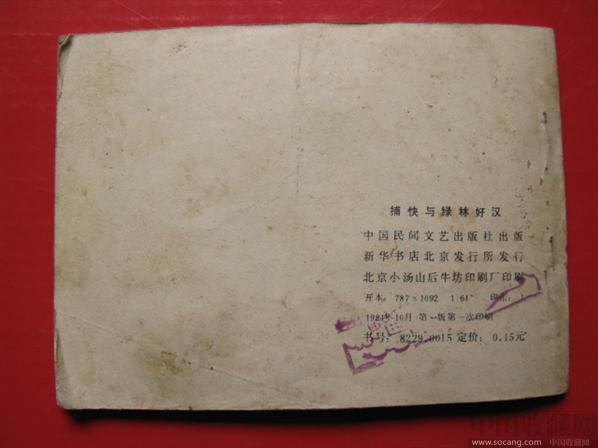 捕快与绿林好汉
中国民间文艺出版社出版
新华书店北京发行所发行
北京小汤山后牛坊印刷厂印刷
开本：787×1092 1/64
1984年10月第一版第一次印刷
书号：8229·0015 定价：0.15元
中国收藏网
www.socang.com 中国收藏网